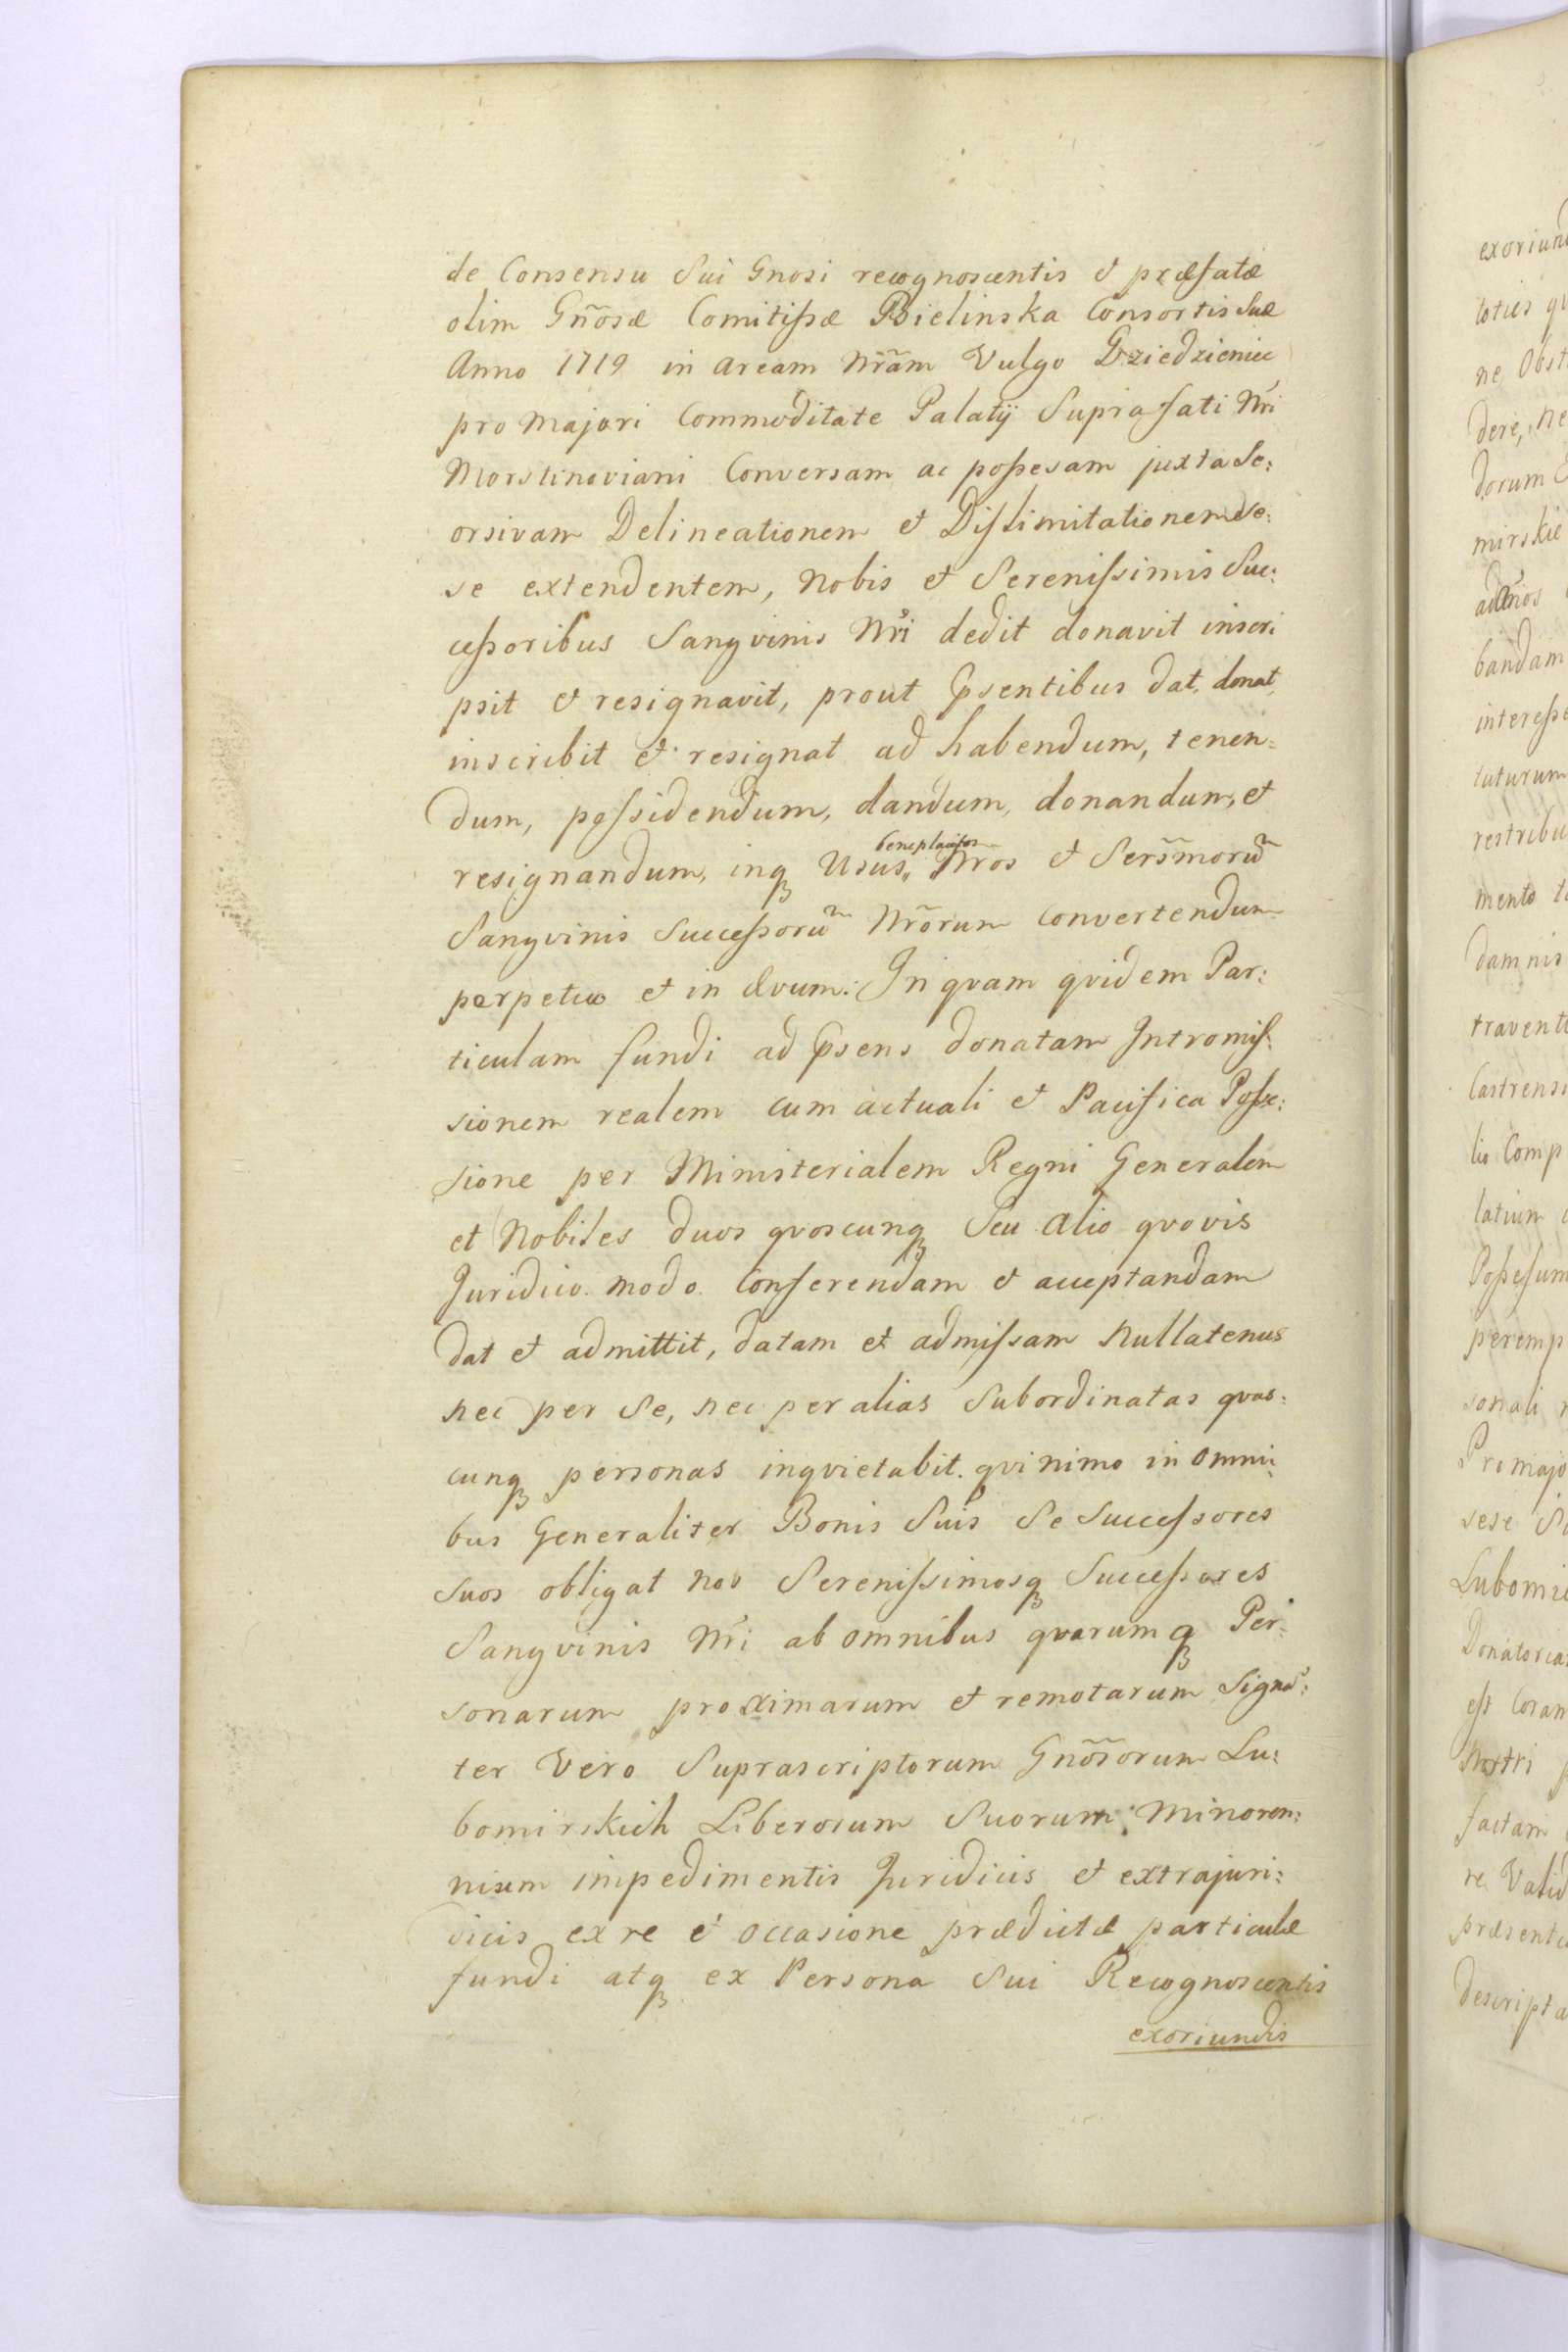 de Consensu Sui Gnosi recognoscentis et præfatæ
olim Gñosæ Comitissæ Bielinska Consortis Suæ
Anno 1719 in aream Nr̃am Vulgo Dziedzieniec
pro majori Commoditate Palatij Suprafati Nri
Morstinoviani Conversam ac possesam juxta Se:
orsivam Delineationem et Dislimitationem de:
se extendentem, nobis et Serenissimis Suc:
cessoribus Sangvinis Nri dedit donavit inscri
psit et resignavit, prout Psentibus dat, donat,
inscribit et resignat ad habendum, tenen=
dum, possidendum, dandum, donandum, et
resignandum, inq Usus, beneplacitos Nros et Sers̃morũ
Sangvinis Successorũ Nr̃orum convertendum
perpetuo et in ævum. In qvam qvidem Par:
ticulam fundi ad Psens donatam Intromis:
sionem realem cum actuali et Pacifica Posse:
sione per Ministerialem Regni Generalem
et Nobiles duos qvoscunq Seu alio qvovis
Juridico modo Conferendam et acceptandam
dat et admittit, datam et admissam nullatenus
nec per Se, nec per alias Subordinatas qvas:
cunq personas inqvietabit. qvinimo in omni:
bus Generaliter Bonis Suis Se Successores
Suos obligat nos Serenissimosq Successores
Sangvinis Nri ab omnibus qvarumq Per:
sonarum proximarum et remotarum Signa:
ter Vero Suprascriptorum Gños̃orum Lu:
bomirskich Liberorum Suorum Minoren:
nium impedimentis Juridicis et extrajuri:
dicis ex re et occasione prædictæ particulæ
fundi atq ex Persona Sui Recognoscentis
exoriundis